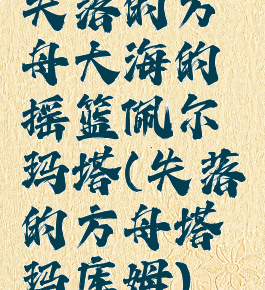 失落的方
舟大海的
摇篮佩尔
玛塔(失落
的方舟塔
玛库姆)